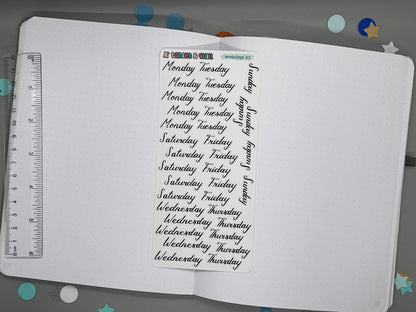 weekdays 03
Monday Tuesday
Monday Tuesday
Monday Tuesday
Monday Tuesday
Monday Tuesday
Saturday Friday
Saturday Friday
Saturday Friday
Saturday Friday
Saturday Friday
Wednesday Thursday
Wednesday Thursday
Wednesday Thursday
Wednesday Thursday
Wednesday Thursday
Sunday
Sunday
Sunday
Sunday
Sunday